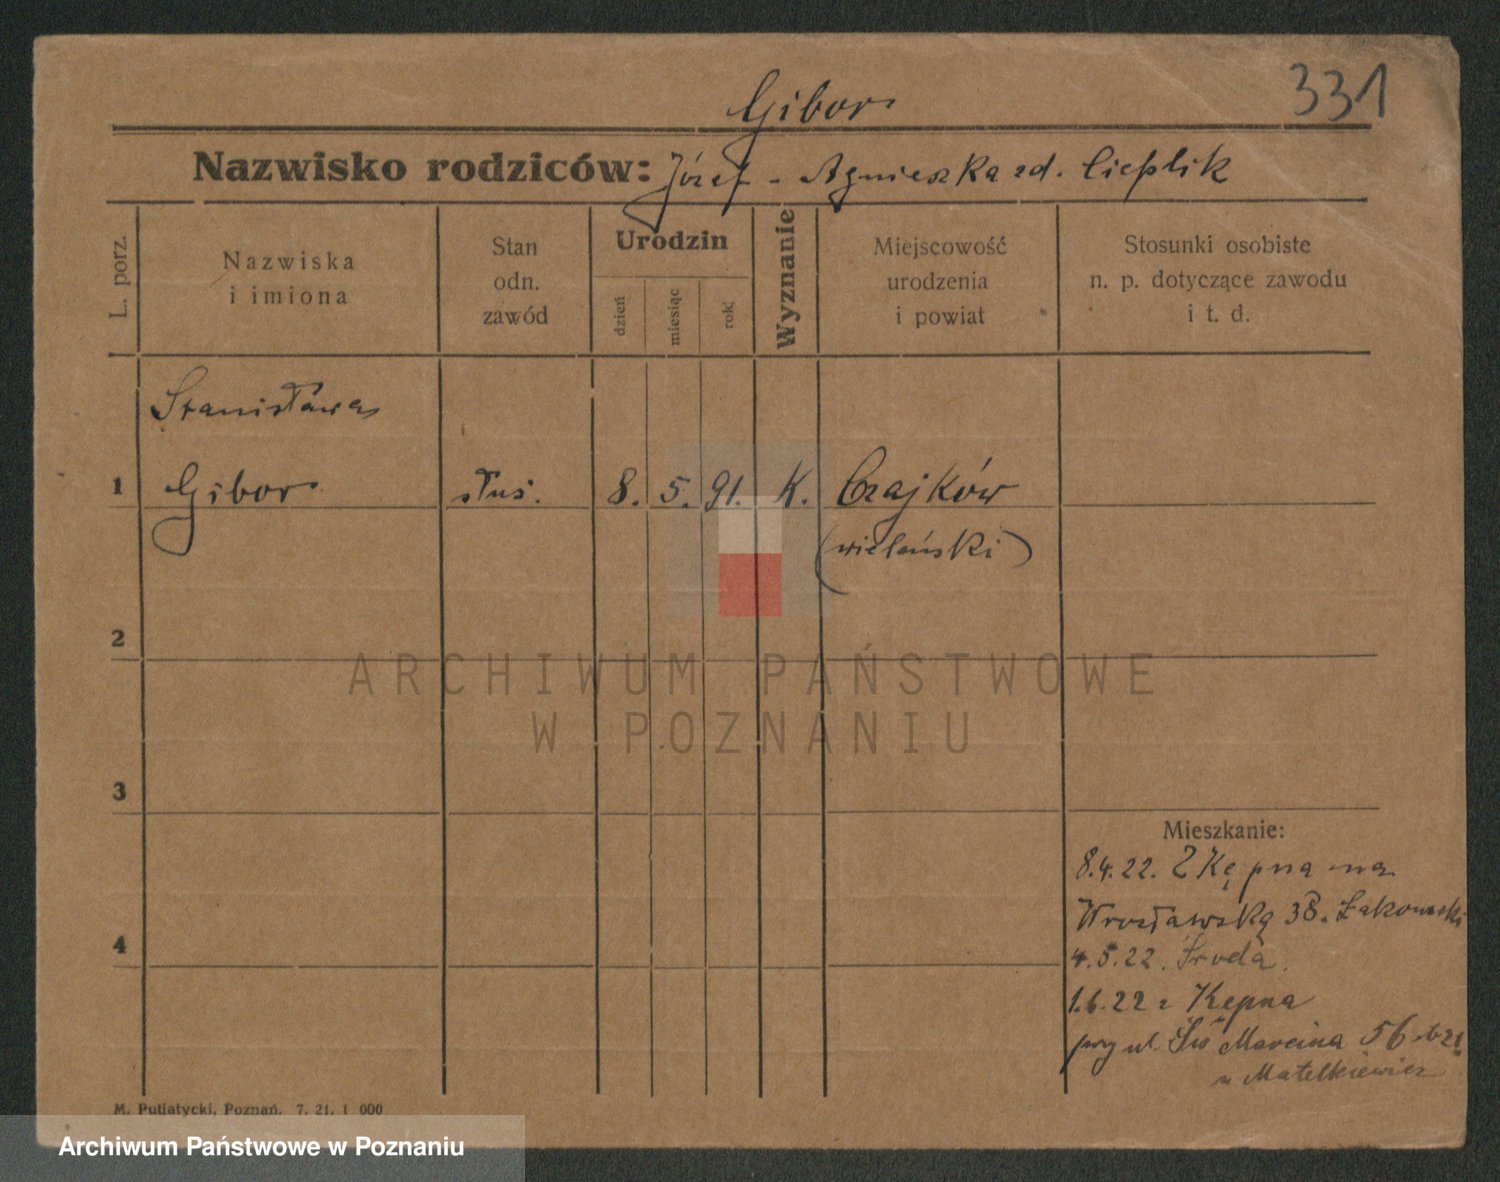 331
Gibor
Nazwisko rodziców: Józef - Agnieszka zd. Cieplik
L. porz.
Nazwiska
i imiona
Stan
odn.
zawód
Urodzin
dzień
miesiąc
rok
Wyznanie
Miejscowość
urodzenia
i powiat
Stosunki osobiste
n. p. dotyczące zawodu
i t. d.
Stanisława
1 Gibor służ. 8. 5. 91. K. Czajków
(wieluński)
2
ARCHIWUM PAŃSTWOWE
W POZNANIU
3
Mieszkanie:
8.4.22. Z Kępna na
Wrocławską 38. Żakowski
4
4.5.22. Środa.
1.6.22 z Kępna
przy ul. Św Marcina 56
u Matelkiewicz
M. Putiatycki, Poznań. 7. 21. 1 000
Archiwum Państwowe w Poznaniu